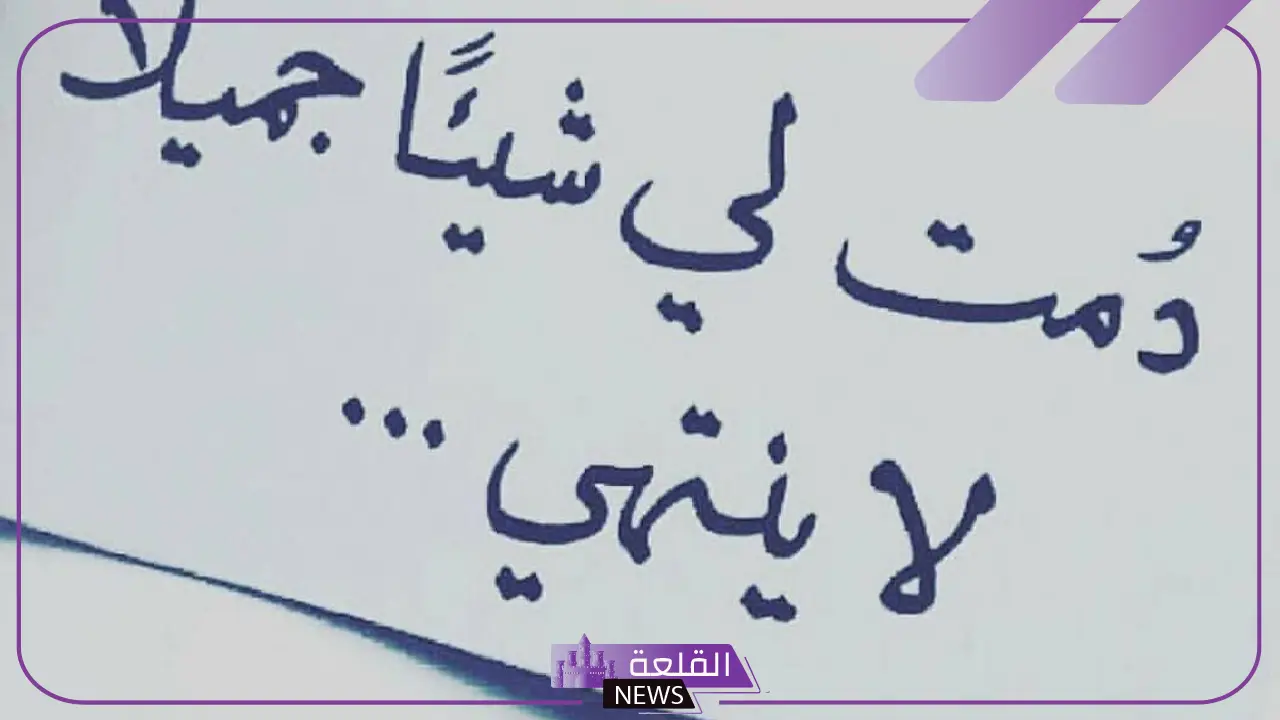 دُمت لي شيئًا جميلا
لا ينتهي ...
القلعة
NEWS